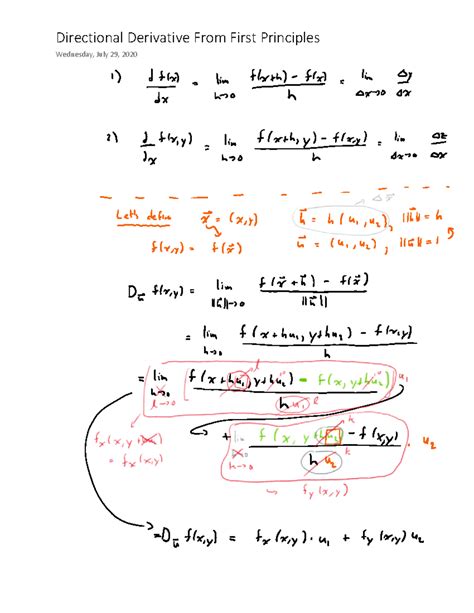 Directional Derivative From First Principles
Wednesday, July 29, 2020
1) d f(x) / dx = lim h→0 f(x+h) - f(x) / h = lim Δx→0 Δy / Δx
2) d / dx f(x,y) = lim h→0 f(x+h, y) - f(x,y) / h = lim Δx→0 Δz / Δx
Let's define x⃗ = (x,y) h⃗ = h(u₁, u₂), ||h⃗|| = h
f(x,y) = f(x⃗) u⃗ = (u₁, u₂), ||u⃗|| = 1
D_u⃗ f(x,y) = lim ||h⃗||→0 f(x⃗ + h⃗) - f(x⃗) / ||h⃗||
= lim h→0 f(x + hu₁, y + hu₂) - f(x,y) / h
= lim h→0 l→0 f(x + hu₁, y + hu₂) - f(x, y + hu₂) / hu₁ l · u₁
f_x(x, y + hu₂)
= f_x(x,y)
+ lim h→0 f(x, y + hu₂) - f(x,y) / hu₂ k · u₂
→ f_y(x,y)
= D_u⃗ f(x,y) = f_x(x,y) · u₁ + f_y(x,y) u₂